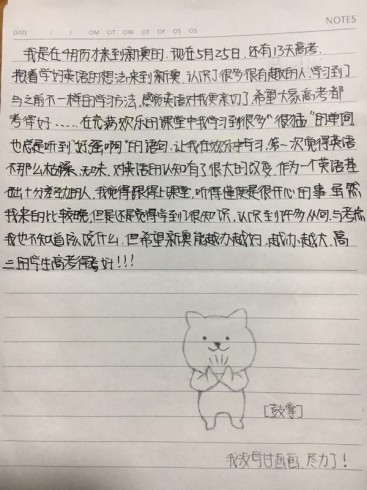 NOTES
DATE / / OM OT OW OT OF OS OS
我是在4月份才来到新奥的.现在5月25日,还有13天高考.
抱着学好英语的想法来到新奥,认识了很多很有趣的人,学习到了
与之前不一样的学习方法,感觉英语对我更亲切了,希望大家高考都
考得好……在充满欢乐的课堂中我学习到很多"很猛"的单词
也总是听到"好强啊"的语句,让我在欢乐中学习,第一次觉得英语
不那么枯燥、无味,对英语的认知有了很大的改变,作为一个英语基
础十分差劲的人,我觉得跟得上课堂,听得懂便是很开心的事.虽然
我来的比较晚,但是还是觉得学到了很知识,认识到许多从何与考
我也不知道该说什么,但希望新奥能越办越好,越办越大,高
三的学生高考得考好!!!
[鼓掌]
我没学过画画,尽力了!